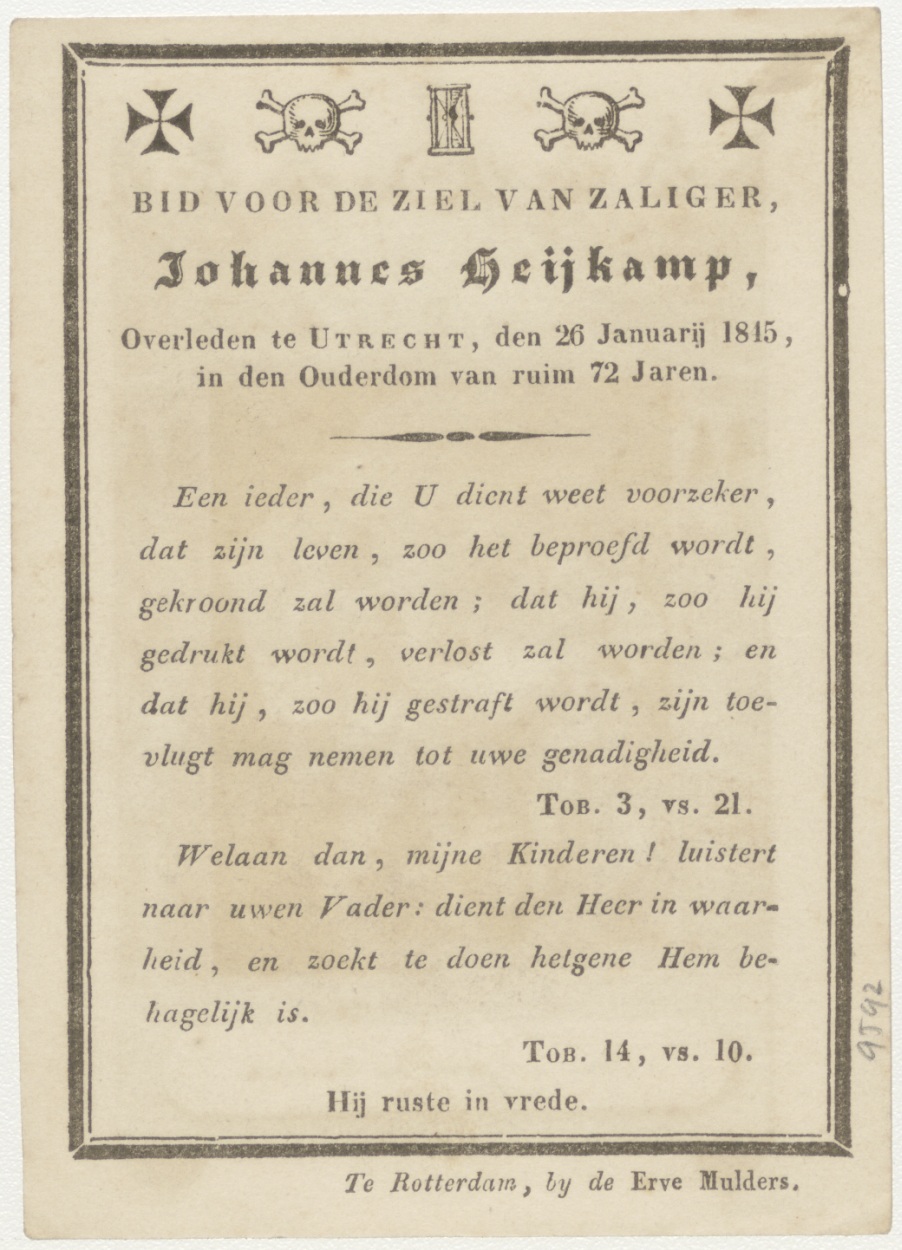 BID VOOR DE ZIEL VAN ZALIGER,
Johannes Heijkamp,
Overleden te UTRECHT, den 26 Januarij 1815,
in den Ouderdom van ruim 72 Jaren.
Een ieder, die U dient weet voorzeker,
dat zijn leven, zoo het beproefd wordt,
gekroond zal worden; dat hij, zoo hij
gedrukt wordt, verlost zal worden; en
dat hij, zoo hij gestraft wordt, zijn toe-
vlugt mag nemen tot uwe genadigheid.
TOB. 3, vs. 21.
Welaan dan, mijne Kinderen! luistert
naar uwen Vader: dient den Heer in waar-
heid, en zoekt te doen hetgene Hem be-
hagelijk is.
TOB. 14, vs. 10.
Hij ruste in vrede.
Te Rotterdam, by de Erve Mulders.
9592